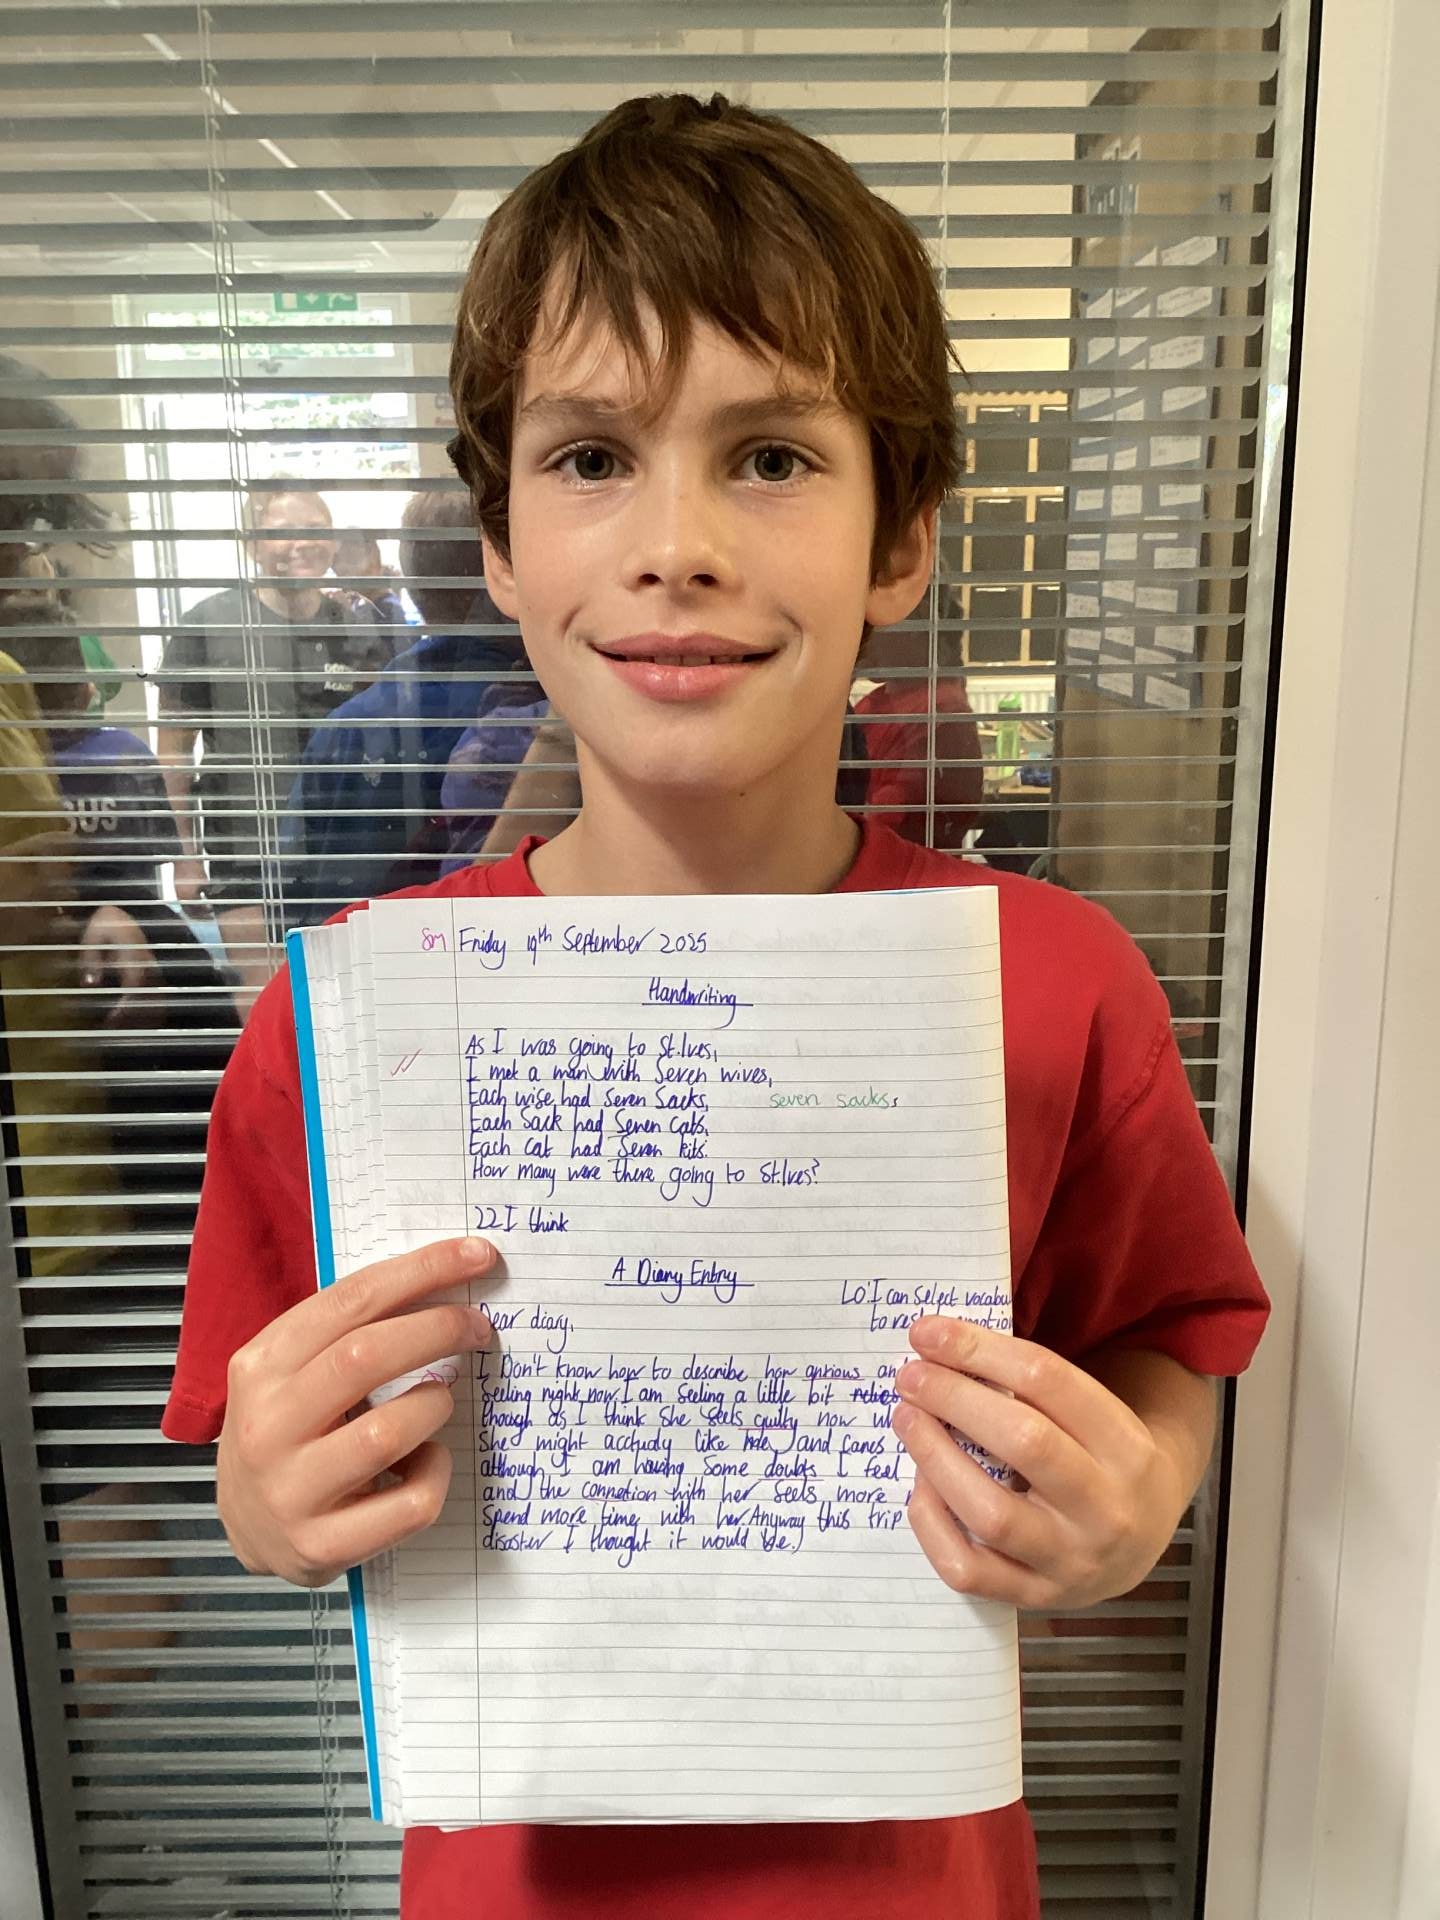 Sm
Friday 19th September 2025
Handwriting
As I was going to St.Ives,
I met a man with Seven wives,
Each wise had Seven Sacks, seven sacks,
Each Sack had Seven Cats,
Each Cat had Seven kits.
How many were there going to St.Ives?
22 I think
A Diary Entry
LO: I can Select vocabu
to emotion
Dear diary,
I Don't know how to describe how anxious an
feeling right now. I am feeling a little bit
though as I think She feels guilty now
She might acctualy like me and
although I am having Some doubts I feel
and the connection with her feels more
Spend more time with her. Anyway this trip
disaster I thought it would be.
SUS